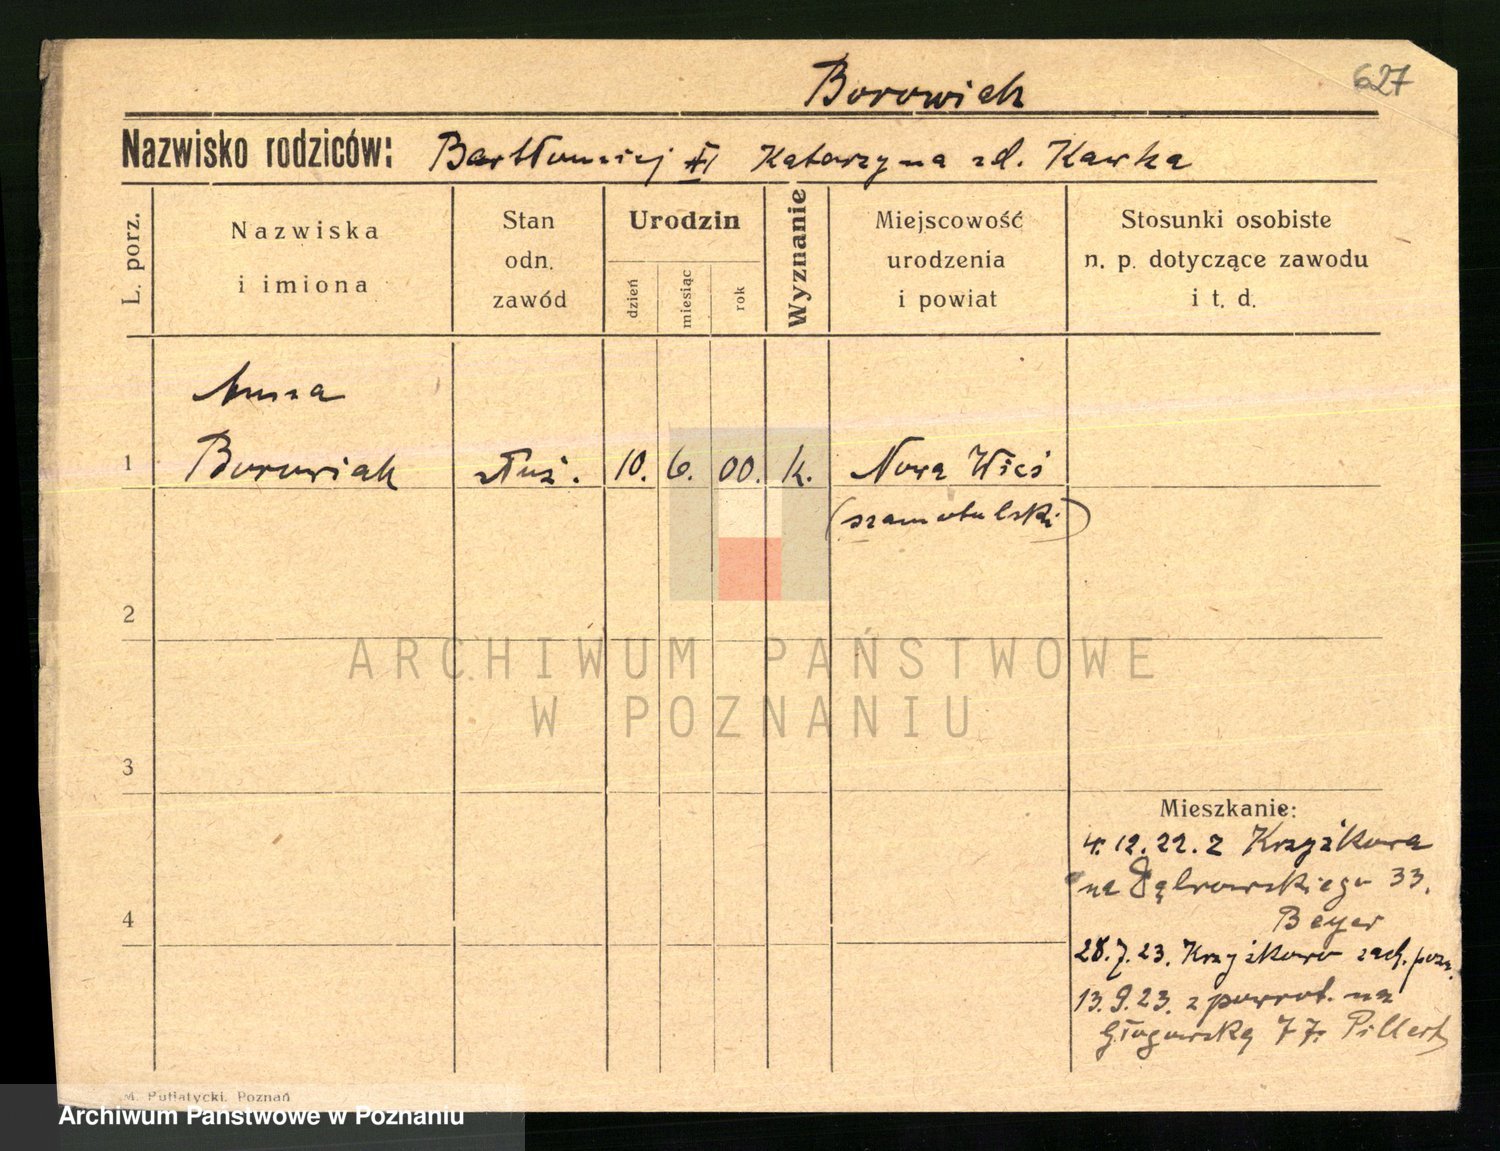 Borowiak
627
Nazwisko rodziców: Bartłomiej Katarzyna zd. Kawka
L. porz.
Nazwiska
i imiona
Stan
odn.
zawód
Urodzin
dzień
miesiąc
rok
Wyznanie
Miejscowość
urodzenia
i powiat
Stosunki osobiste
n. p. dotyczące zawodu
i t. d.
Anna
1 Borowiak służ. 10. 6. 00. k. Nowa Wieś
(szamotulski)
2
ARCHIWUM PAŃSTWOWE
W POZNANIU
3
Mieszkanie:
4. 12. 22. z Krzyżkowa
na Dąbrowskiego 33.
4
Beyer
28. 7. 23. Krzyżkowo zach. pozn.
13. 9. 23. z powrot. na
Głogowską 77. Pillert
M. Putiatycki, Poznań
Archiwum Państwowe w Poznaniu